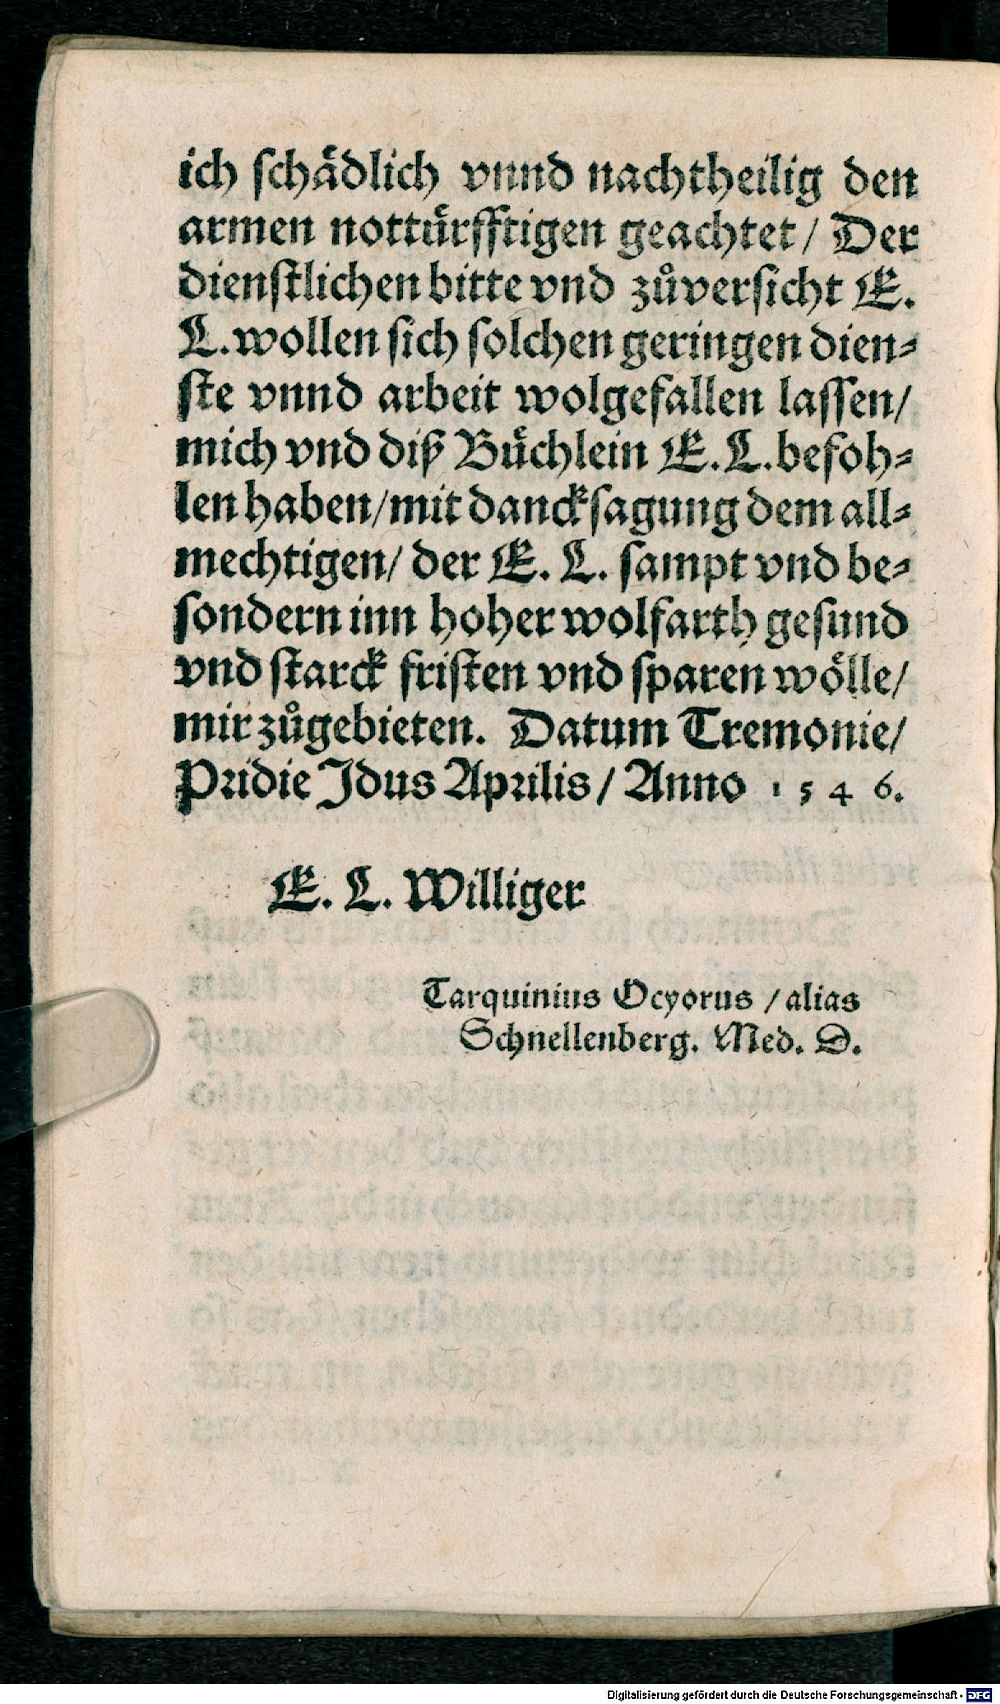 ich schaͤdlich vnnd nachtheilig den
armen nottuͤrfftigen geachtet / Der
dienstlichen bitte vnd zuͦversicht E.
L. wollen sich solchen geringen dien⸗
ste vnnd arbeit wolgefallen lassen /
mich vnd diß Buͤchlein E. L. befoh⸗
len haben / mit dancksagung dem all⸗
mechtigen / der E. L. sampt vnd be⸗
sondern inn hoher wolfarth gesund
vnd starck fristen vnd sparen woͤlle /
mir zuͦgebieten. Datum Tremonie /
Pridie Idus Aprilis / Anno 1546.
E. L. Williger
Tarquinius Ocyorus / alias
Schnellenberg. Med. D.
Digitalisierung gefördert durch die Deutsche Forschungsgemeinschaft - DFG